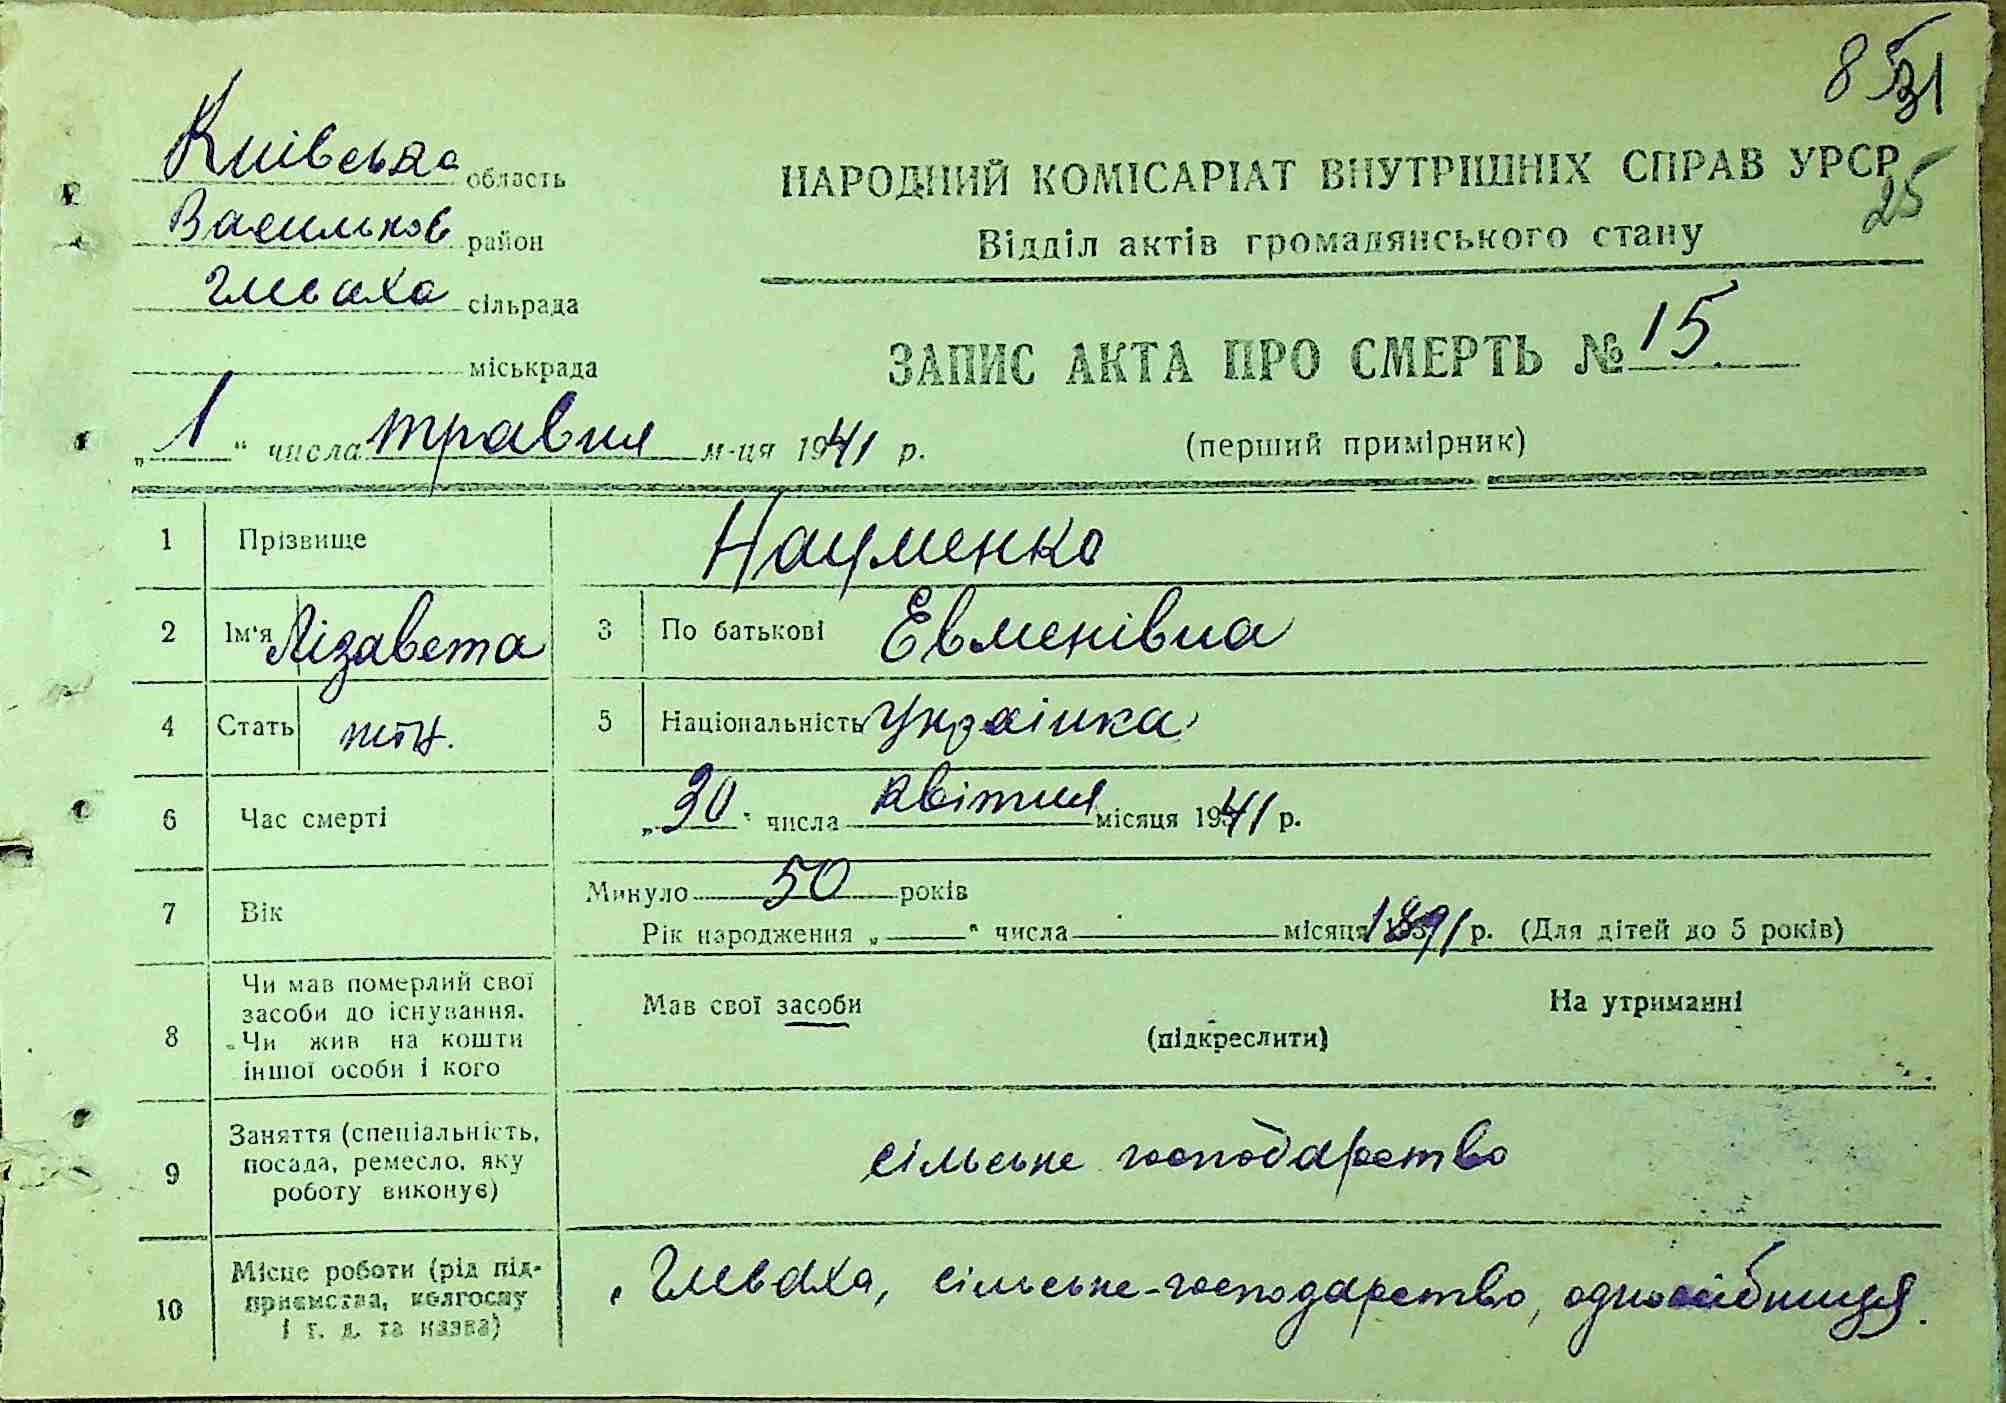 Київська область
Васильков район
Глеваха сільрада
міськрада
25
НАРОДНИЙ КОМІСАРІАТ ВНУТРІШНІХ СПРАВ УРСР
Відділ актів громадянського стану
ЗАПИС АКТА ПРО СМЕРТЬ № 15
(перший примірник)
„1“ числа травня м-ця 1941 р.
1 Прізвище Науменко
2 Ім'я Лізавета 3 По батькові Евменівна
4 Стать жін. 5 Національність Українка
6 Час смерті „30“ числа квітня місяця 1941 р.
7 Вік Минуло 50 років
Рік народження „ “ числа місяця 1891 р. (Для дітей до 5 років)
8 Чи мав померлий свої засоби до існування. Чи жив на кошти іншої особи і кого
Мав свої засоби (підкреслити) На утриманні
9 Заняття (спеціальність, посада, ремесло, яку роботу виконує) сільське господарство
10 Місце роботи (рід підприємства, колгоспу і т. д. та назва) Глеваха, сільське-господарство, односібниця.